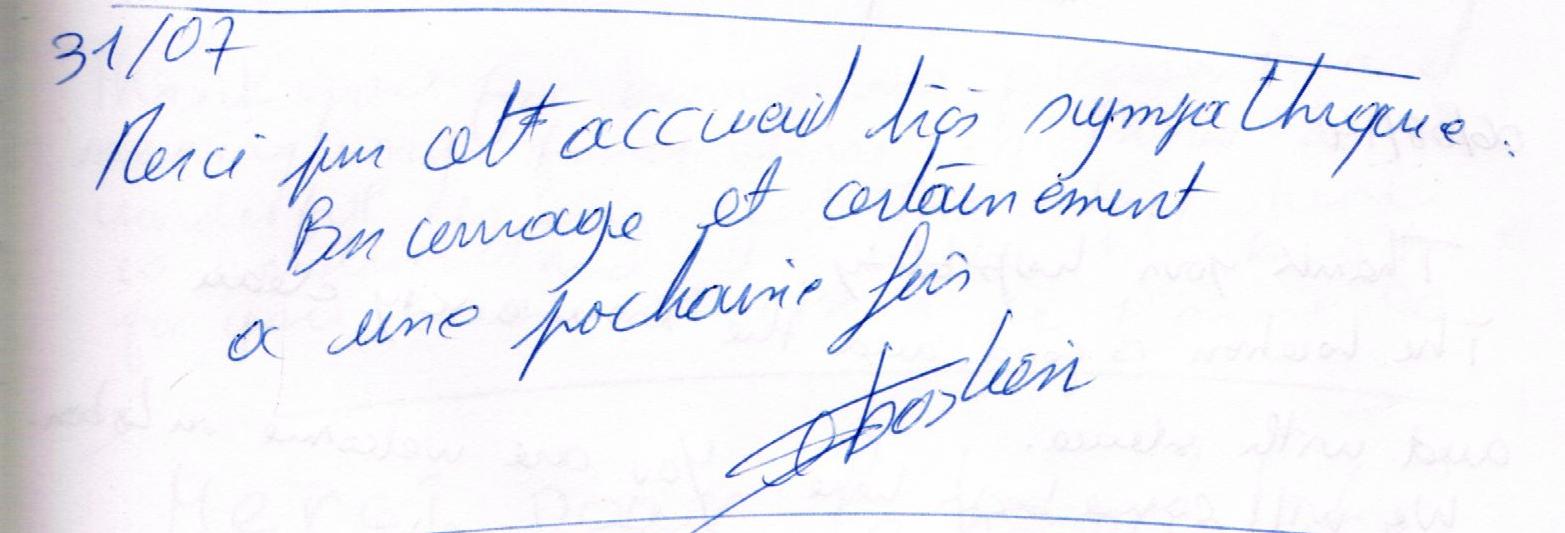 31/07
Merci pour cett accueil très sympathique.
Bon courage et certainement
a une prochaine fois
Sébastien